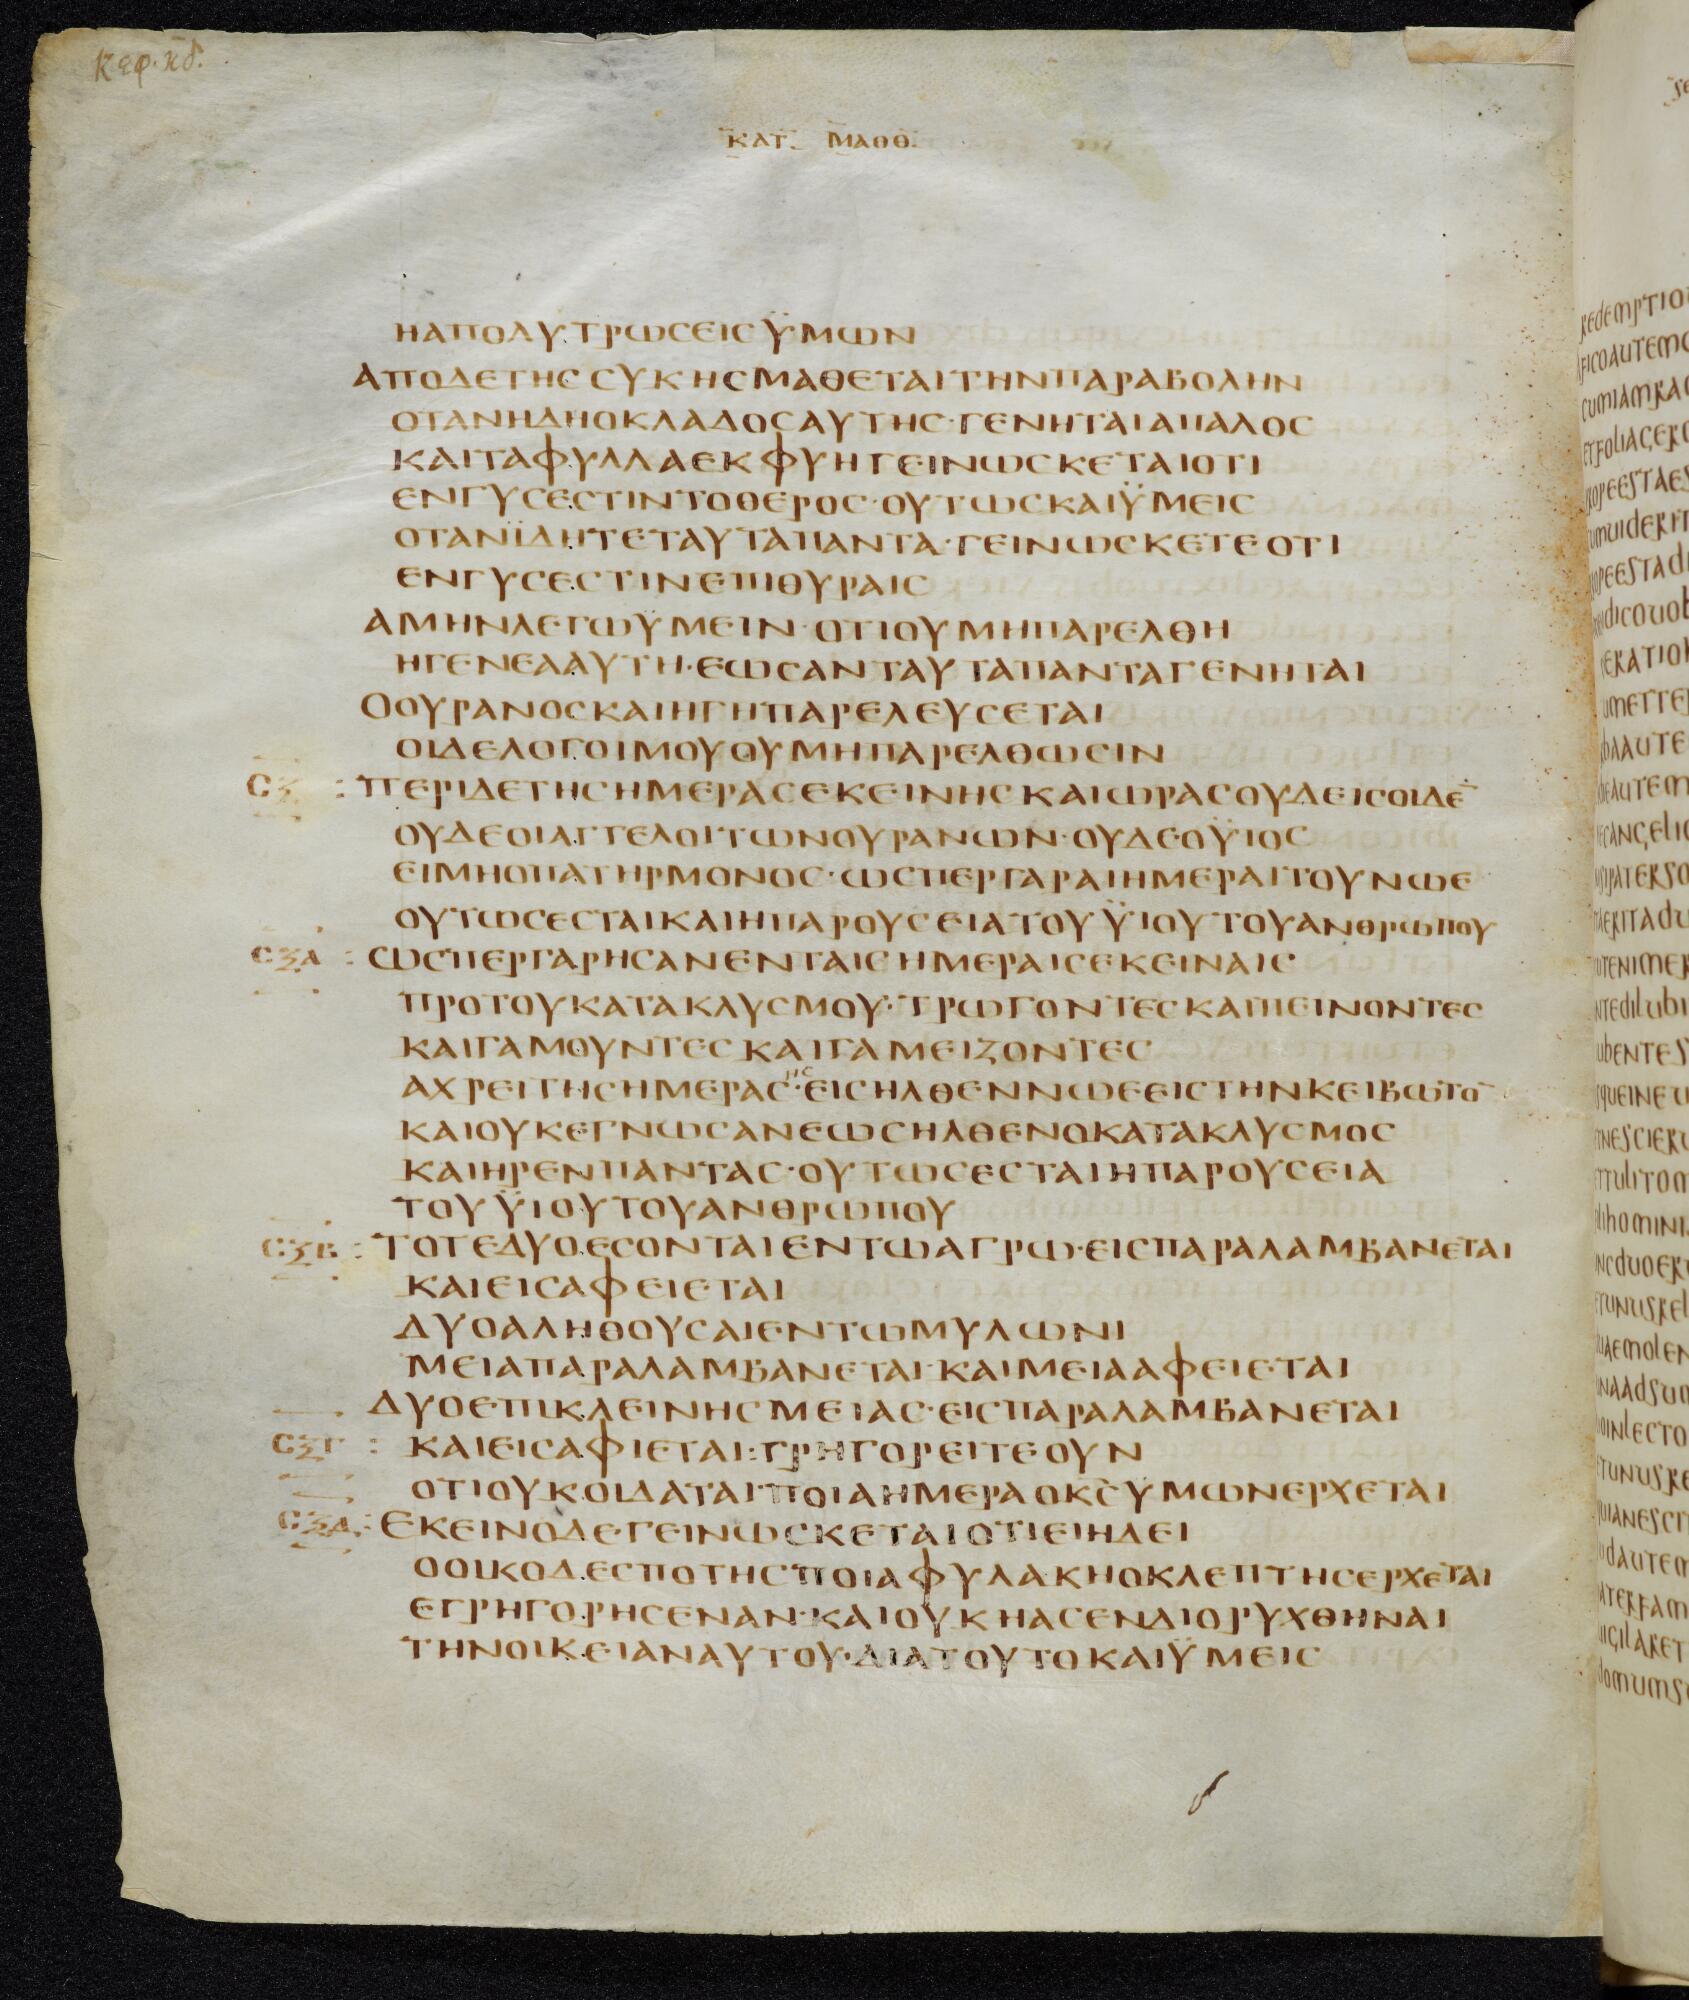 Κεφ. κδ.
ΚΑΤ ΜΑΘΘ
ΗΑΠΟΛΥΤΡΩCΕΙCΫΜΩΝ
ΑΠΟΔΕΤΗCCΥΚΗCΜΑΘΕΤΑΙΤΗΝΠΑΡΑΒΟΛΗΝ
ΟΤΑΝΗΔΗΟΚΛΑΔΟCΑΥΤΗC·ΓΕΝΗΤΑΙΑΠΑΛΟC
ΚΑΙΤΑΦΥΛΛΑΕΚΦΥΗΓΕΙΝΩCΚΕΤΑΙΟΤΙ
ΕΝΓΥCΕCΤΙΝΤΟΘΕΡΟC·ΟΥΤΩCΚΑΙΫΜΕΙC
ΟΤΑΝΪΔΗΤΕΤΑΥΤΑΠΑΝΤΑ·ΓΕΙΝΩCΚΕΤΕΟΤΙ
ΕΝΓΥCΕCΤΙΝΕΠΙΘΥΡΑΙC
ΑΜΗΝΛΕΓΩΫΜΕΙΝ·ΟΤΙΟΥΜΗΠΑΡΕΛΘΗ
ΗΓΕΝΕΑΑΥΤΗ·ΕΩCΑΝΤΑΥΤΑΠΑΝΤΑΓΕΝΗΤΑΙ
ΟΟΥΡΑΝΟCΚΑΙΗΓΗΠΑΡΕΛΕΥCΕΤΑΙ
ΟΙΔΕΛΟΓΟΙΜΟΥΟΥΜΗΠΑΡΕΛΘΩCΙΝ
CΞ : ΠΕΡΙΔΕΤΗCΗΜΕΡΑCΕΚΕΙΝΗCΚΑΙΩΡΑCΟΥΔΕΙCΟΙΔΕ̅
ΟΥΔΕΟΙΑΓΓΕΛΟΙΤΩΝΟΥΡΑΝΩΝ·ΟΥΔΕΟΫΙΟC
ΕΙΜΗΟΠΑΤΗΡΜΟΝΟC·ΩCΠΕΡΓΑΡΑΙΗΜΕΡΑΙΤΟΥΝΩΕ
ΟΥΤΩCΕCΤΑΙΚΑΙΗΠΑΡΟΥCΕΙΑΤΟΥΫΙΟΥΤΟΥΑΝΘΡΩΠΟΥ
CΞΑ : ΩCΠΕΡΓΑΡΗCΑΝΕΝΤΑΙCΗΜΕΡΑΙCΕΚΕΙΝΑΙC
ΠΡΟΤΟΥΚΑΤΑΚΛΥCΜΟΥ·ΤΡΩΓΟΝΤΕCΚΑΙΠΕΙΝΟΝΤΕC
ΚΑΙΓΑΜΟΥΝΤΕCΚΑΙΓΑΜΕΙΖΟΝΤΕC
ΑΧΡΕΙΤΗCΗΜΕΡΑC·ηςΕΙCΗΛΘΕΝΝΩΕΕΙCΤΗΝΚΕΙΒΩΤΟ̅
ΚΑΙΟΥΚΕΓΝΩCΑΝΕΩCΗΛΘΕΝΟΚΑΤΑΚΛΥCΜΟC
ΚΑΙΗΡΕΝΠΑΝΤΑC·ΟΥΤΩCΕCΤΑΙΗΠΑΡΟΥCΕΙΑ
ΤΟΥΫΙΟΥΤΟΥΑΝΘΡΩΠΟΥ
CΞΒ : ΤΟΤΕΔΥΟΕCΟΝΤΑΙΕΝΤΩΑΓΡΩ·ΕΙCΠΑΡΑΛΑΜΒΑΝΕΤΑΙ
ΚΑΙΕΙCΑΦΕΙΕΤΑΙ
ΔΥΟΑΛΗΘΟΥCΑΙΕΝΤΩΜΥΛΩΝΙ
ΜΕΙΑΠΑΡΑΛΑΜΒΑΝΕΤΑΙ·ΚΑΙΜΕΙΑΑΦΕΙΕΤΑΙ
ΔΥΟΕΠΙΚΛΕΙΝΗCΜΕΙΑC·ΕΙCΠΑΡΑΛΑΜΒΑΝΕΤΑΙ
CΞΓ : ΚΑΙΕΙCΑΦΙΕΤΑΙ:ΓΡΗΓΟΡΕΙΤΕΟΥΝ
ΟΤΙΟΥΚΟΙΔΑΤΑΙ·ΠΟΙΑΗΜΕΡΑΟΚ̅C̅ΥΜΩΝΕΡΧΕΤΑΙ
CΞΔ : ΕΚΕΙΝΟΔΕΓΕΙΝΩCΚΕΤΑΙΟΤΙΕΙΗΔΕΙ
ΟΟΙΚΟΔΕCΠΟΤΗCΠΟΙΑΦΥΛΑΚΗΟΚΛΕΠΤΗCΕΡΧΕΤΑΙ
ΕΓΡΗΓΟΡΗCΕΝΑΝ·ΚΑΙΟΥΚΗΑCΕΝΔΙΟΡΥΧΘΗΝΑΙ
ΤΗΝΟΙΚΕΙΑΝΑΥΤΟΥ·ΔΙΑΤΟΥΤΟΚΑΙΫΜΕΙC